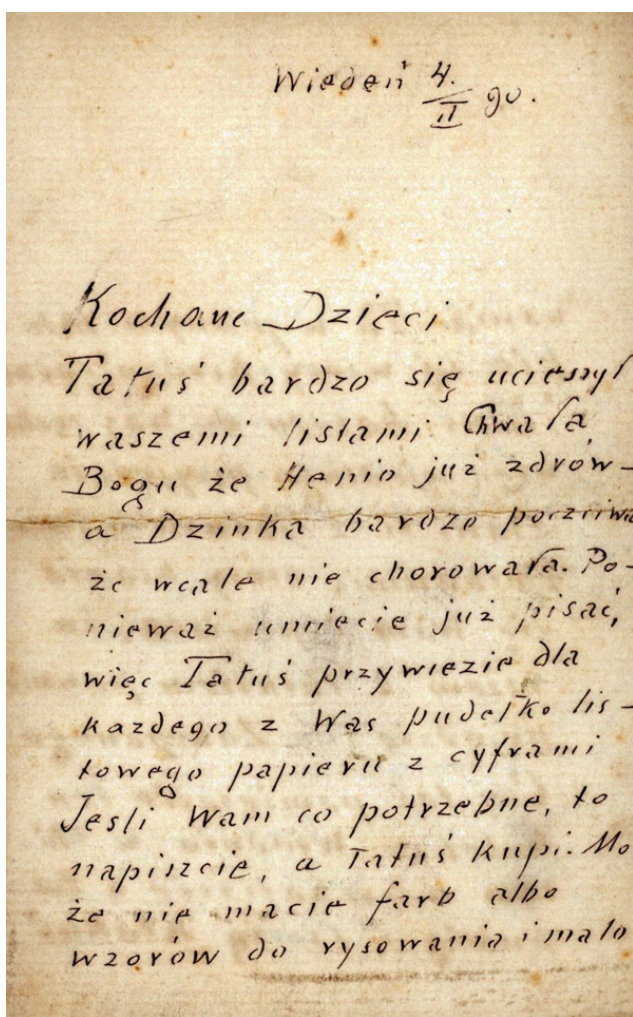 Wiedeń 4./II 90.
Kochane Dzieci
Tatuś bardzo się ucieszył
waszemi listami Chwała
Bogu że Henio już zdrów –
a Dzinka bardzo poczciwa
że wcale nie chorowała. Po-
nieważ umiecie już pisać,
więc Tatuś przywiezie dla
kazdego z Was pudełko lis-
towego papieru z cyframi
Jesli Wam co potrzebne, to
napiszcie, a Tatuś kupi. Mo
że nie macie farb albo
wzorów do rysowania i mało